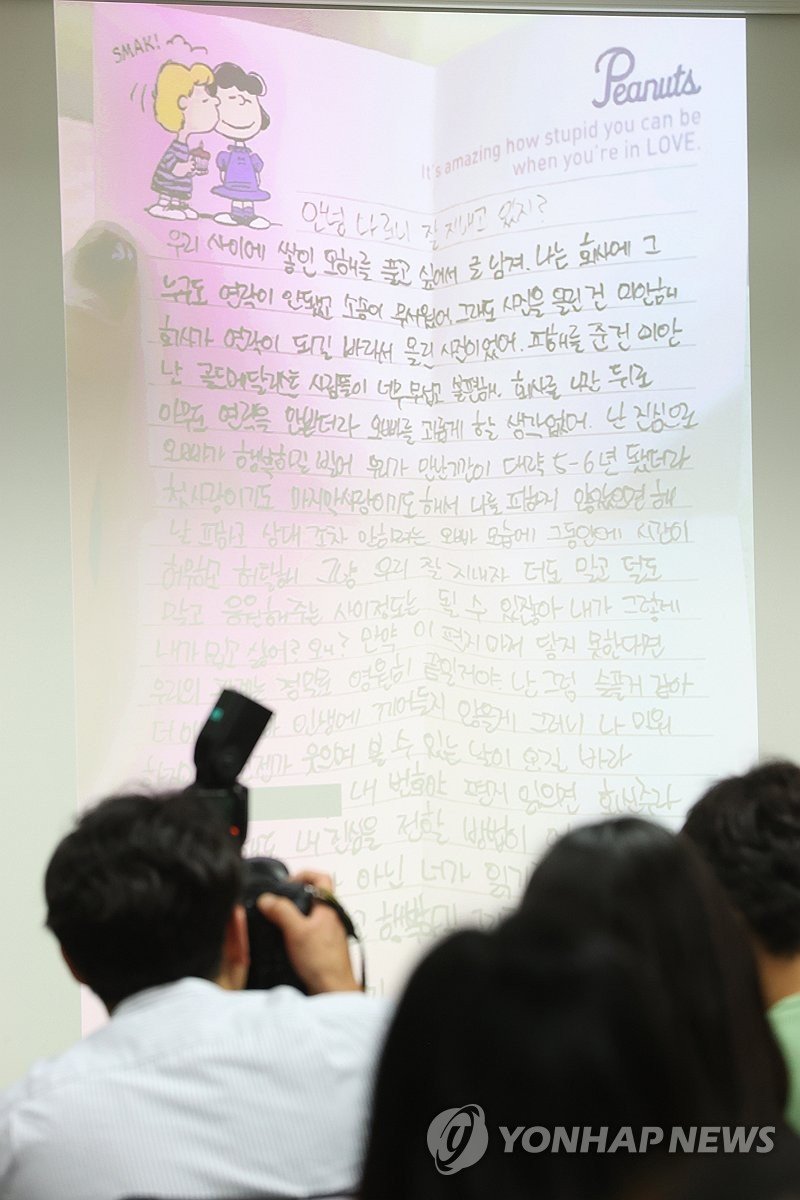 SMAK!
Peanuts
It's amazing how stupid you can be
when you're in LOVE.
안녕 나 잘 지내고 있지?
우리 사이에 쌓인 오해를 풀고 싶어서 글 남겨. 나는 회사에 그
누구도 연락이 안됐고 소송이 무서웠어 그래도 사면을 올린 건 미안해
회사가 연락이 되길 바라서 올린 사진이었어. 피해를 준건 미안
난 골드메달리스트 사람들이 너무 무섭고 불편해. 회사를 나간 뒤로
아무도 연락을 안받더라 오빠를 괴롭게 할 생각없어. 난 진심으로
오빠가 행복하길 빌어 우리가 만난기간이 대략 5-6년 됐더라
첫사랑이기도 마지막사랑이기도해서 나를 피하지 않았으면 해
날 피하고 상대 조차 안하려는 오빠 모습에 그동안에 시간이
허무하고 허탈해 그냥 우리 잘 지내자 더도 말고 덜도
말고 응원해주는 사이정도는 될 수 있잖아 내가 그렇게
내가 밉고 싫어? 왜? 만약 이 편지마저 닿지 못한다면
우리의 관계는 정말로 영원히 끝일거야. 난 그럼 슬플거 같아
더 인생에 끼어들지 않을게 그러니 나 미워
웃으며 볼 수 있는 날이 오길 바라
내 번호야 편지 읽으면 회신주라
내 진심을 전할 방법이
아닌 너가 읽기
행복
YONHAP NEWS